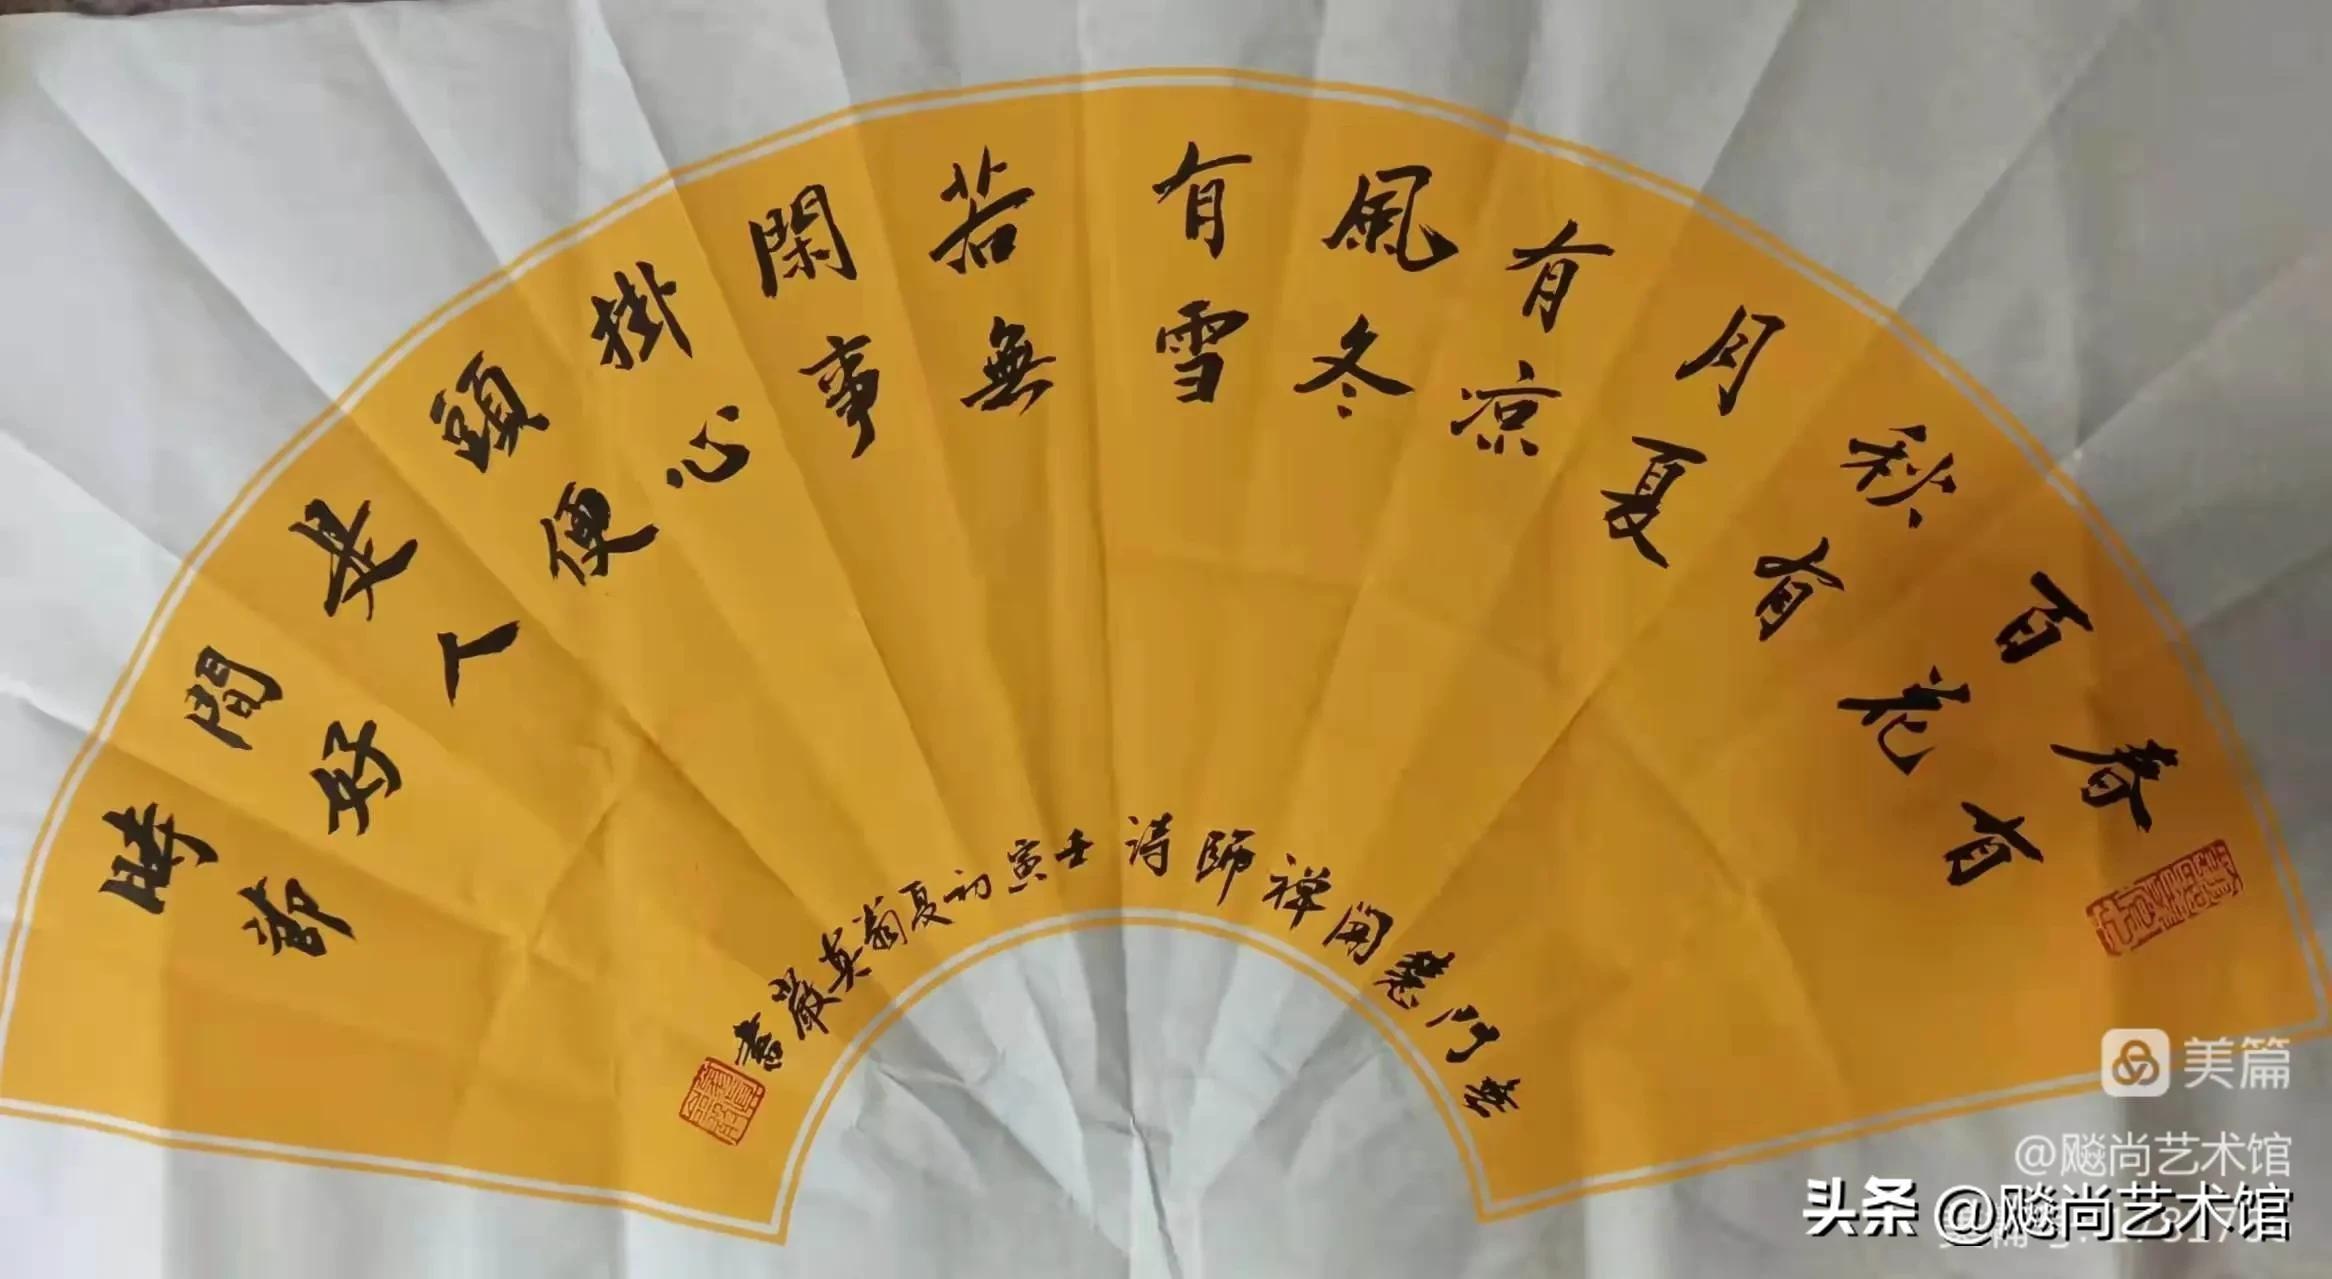 春有
百花
秋有
月夏
有凉
風冬
有雪
若無
閑事
掛心
頭便
是人
間好
時節
無門慧開禅師詩壬寅初夏翁嚴書
美篇
@飚尚艺术馆
头条 @飚尚艺术馆